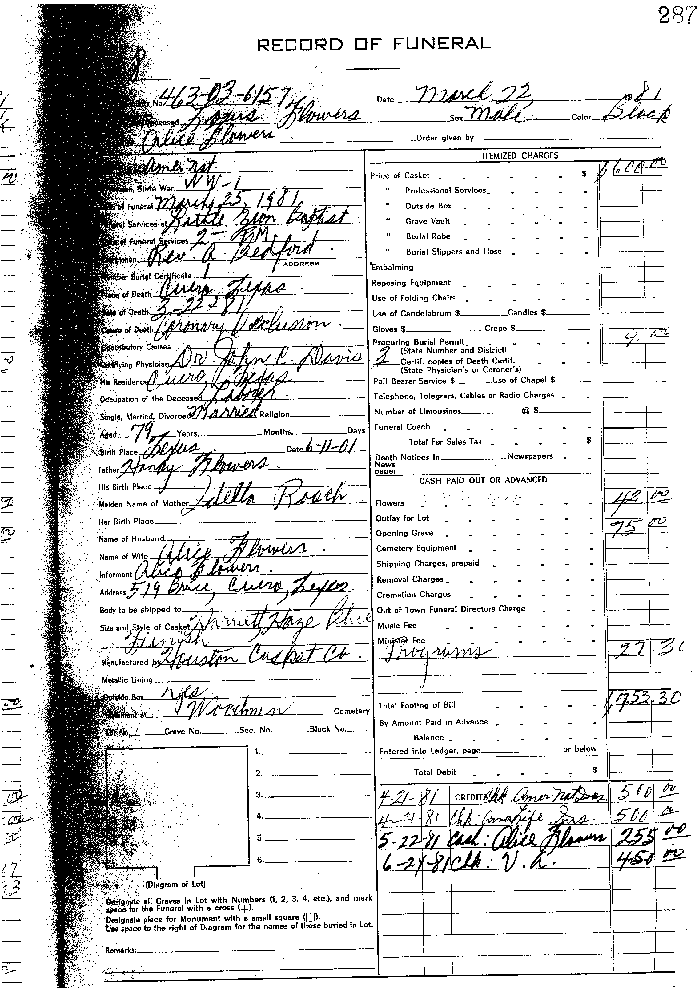 287
RECORD OF FUNERAL
No. 463-03-6157 Date March 22 81
Flowers Sex Male Color Black
Alice Flowers Order given by
ITEMIZED CHARGES
Price of Casket $ $600.00
State War WW-1 " Professional Services
of Funeral March 25, 1981 " Outside Box
Services at Zion Baptist " Grave Vault
of Funeral Services 2- PM " Burial Robe
Rev. A. Bedford " Burial Slippers and Hose
ADDRESS
Burial Certificate 1 Embalming
of Death Cuero, Texas Reposing Equipment
of Death 3-22-81 Use of Folding Chairs
of Death Coronary Occlusion Use of Candelabrum $ Candles $
Contributory Causes Gloves $ Crepe $
Certifying Physician Dr. John C. Davis Procuring Burial Permit 9.00
(State Number and District)
3 Certif. copies of Death Certif.
(State Physician's or Coroner's)
His Residence Cuero, Texas Pall Bearer Service $ Use of Chapel $
Occupation of the Deceased Laborer Telephone, Telegrams, Cables or Radio Charges
Single, Married, Divorced Married Religion Number of Limousines @ $
Aged 79 Years Months Days Funeral Coach
Birth Place Texas Date 6-11-01 Total For Sales Tax $
Father Flowers Death Notices In Newspapers
News
paper
His Birth Place CASH PAID OUT OR ADVANCED
Maiden Name of Mother Idella Roach Flowers 42 00
Her Birth Place Outlay for Lot
Opening Grave 75 00
Name of Husband Cemetery Equipment
Name of Wife Alice Flowers Shipping Charges, prepaid
Informant Alice Flowers Removal Charges
Address 519 Cuero, Texas Cremation Charges
Body to be shipped to Out of Town Funeral Directors Charge
Size and Style of Casket Haze Blue Music Fee
Finish Minister Fee
Programs 27 30
Manufactured by Houston Casket Co.
Metallic Lining
Outside Box yes Total Footing of Bill $753.30
Interment at Woodmen Cemetery By Amount Paid in Advance
Lot No. Grave No. Sec. No. Block No. Balance
Entered into Ledger, page or below
1. Total Debit $
2.
3. 4-21-81 CREDITS Chk Amer Nat Ins 500 00
4. 4-21-81 Chk Ins 500 00
5. 5-22-81 Cash: Alice Flowers 255 00
6. 6-24-81 Chk. V. A. 450 00
(Diagram of Lot)
Designate all Graves in Lot with Numbers (1, 2, 3, 4, etc.), and mark
space for the Funeral with a cross (+).
Designate place for Monument with a small square (□).
Use space to the right of Diagram for the names of those buried in Lot.
Remarks: